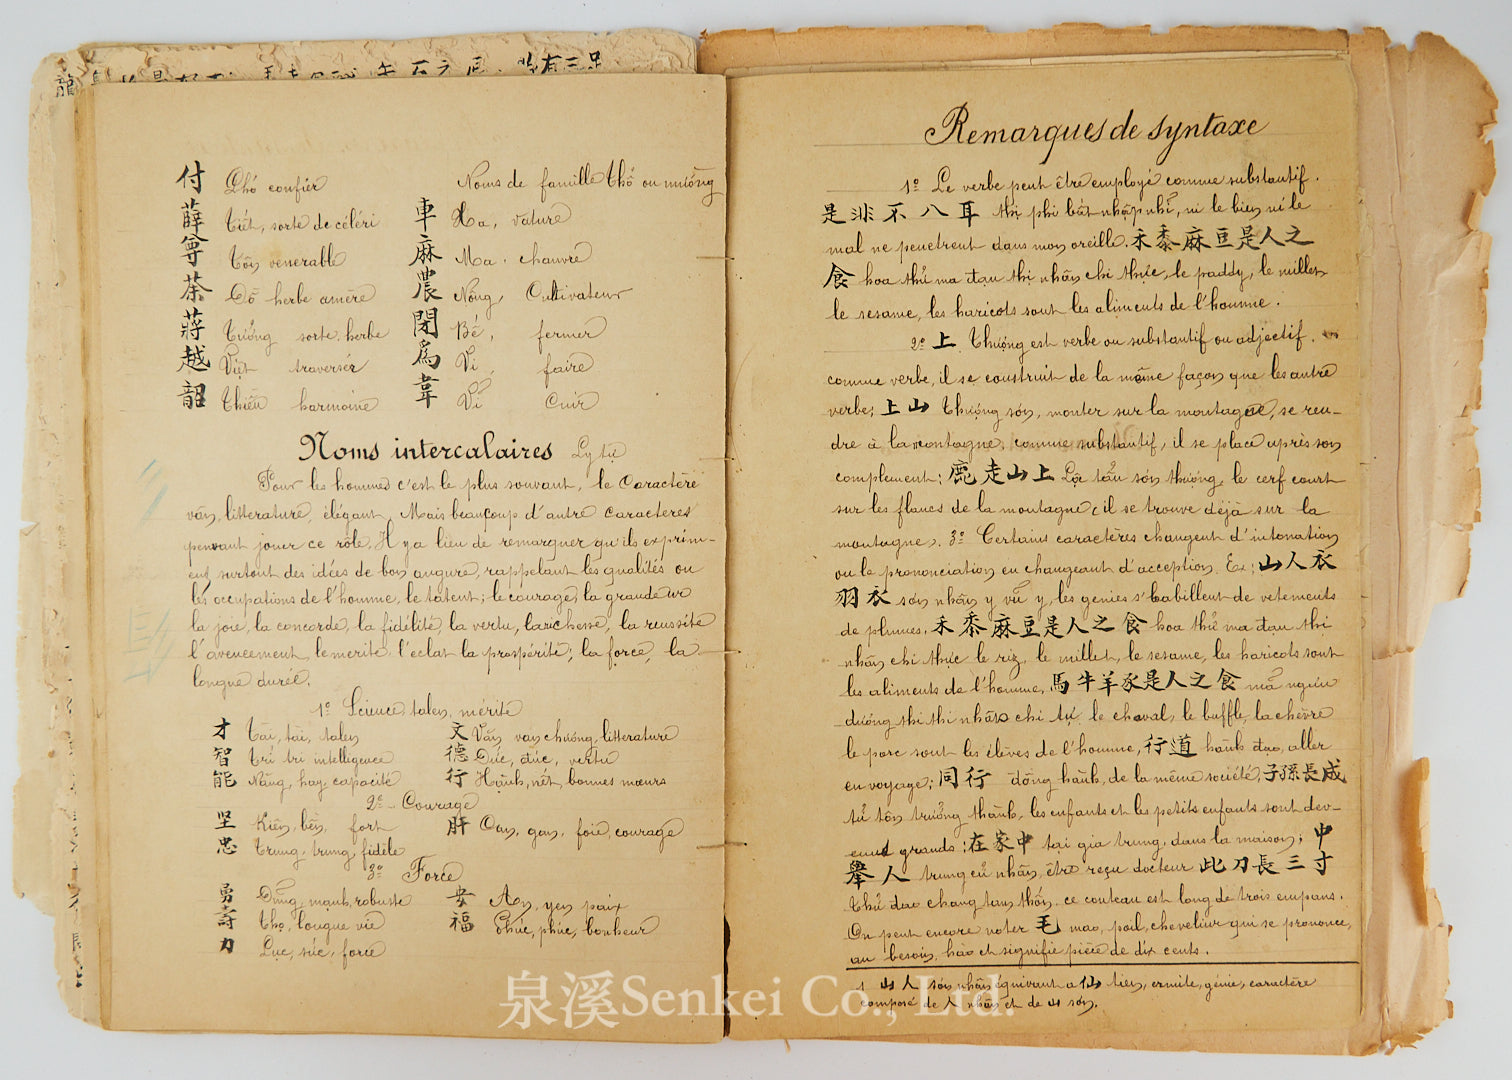 付 Phó confier
薛 Tiết, sorte de céléri
尊 Tôn venerable
荼 Đồ herbe amère
蔣 Tưởng sorte herbe
越 Việt traverser
韶 Thiều harmoine
Noms de famille Thổ ou mường
車 Xa, voiture
麻 Ma, chanvre
農 Nông, Cultivateur
閉 Bế, fermer
爲 Vi, faire
韋 Vi Cuir
Noms intercalaires Ly tự
Pour les hommes c'est le plus souvant, le Caractère
văn, litterature, élégant, Mais beaucoup d'autre caracteres
peuvant jouer ce rôle, Il y a lieu de remarquer qu'ils exprim-
ent surtout des idées de bon augure, rappelant les qualités ou
les occupations de l'homme, le talent; le courage, la grandeur
la joie, la concorde, la fidélité la vertu, la richesse, la reussite
l'avencement, le merite l'eclat la prospérité; la force, la
longue durée.
1º Science, talen, mérite
才 Tài, tài, talen
智 Trí trí intelligence
能 Năng, hay, capacité
文 Văn van chương, litterature
德 Đức, đức, vertu
行 Hạnh, nết, bonnes mœurs
2º - Courage
坚 Kiên, bền, fort
忠 Trung, trung, fidèle
肝 Can, gan, foie, courage
3º Force
勇 Dũng, mạnh, robuste
壽 Thọ, longue vie
力 Lực, sức, force
安 An, yên paix
福 Phúc, phúc, bonheur
Remarques de syntaxe
1º Le verbe peut être employé comme substantif.
是非不入耳 thị phi bất nhập nhĩ, ni le bien ni le
mal ne penetrent dans mon oreille. 禾黍麻豆是人之
食 hoa thử ma đau thị nhân chi thực, le paddy, le millet
le sesame, les haricots sont les aliments de l'homme.
2º 上 Thượng est verbe ou substantif ou adjectif.
comme verbe, il se construit de la même façon que les autre
verbe; 上山 Thượng sơn, monter sur la montagne, se ren-
dre à la montagne, comme substantif, il se place après son
complement; 鹿走山上 Lộc tẩu sơn thượng, le cerf court
sur les flancs de la montagne (il se trouve déjà sur la
montagne). 3º Certains caractères changent d'intonation
ou le prononciation en changeant d'acception. Ex: 山人衣
羽衣 sơn nhân y vũ y, les genies s'habillent de vetements
de plumes. 禾黍麻豆是人之食 hoa thử ma đau thi
nhân chi thực le riz, le millet, le sesame, les haricots sont
les aliments de l'homme, 馬牛羊豕是人之食 mã ngưu
dương thi thi nhân chi tự, le cheval, le buffle, la chèvre
le porc sont les élèves de l'homme, 行道 hành đạo, aller
en voyage; 同行 đồng hành, de la même société, 子孫長成
tử tôn trưởng thành, les enfants et les petits enfants sont dev-
enus grands; 在家中 tại gia trung, dans la maison; 中
舉人 trung cử nhân, être reçu docteur 此刀長三寸
thử đao chang tam thốn, ce couteau est long de trois empans.
On peut encore noter 毛 mao, poil, cheveliur qui se prononce,
au besoin, hào et signifie pièce de dix cents.
1 山人 sơn nhân équivant a 仙 tien, ermite, génie, caractère
composé de 人 nhân et de 山 sơn.
泉溪Senkei Co., Ltd.